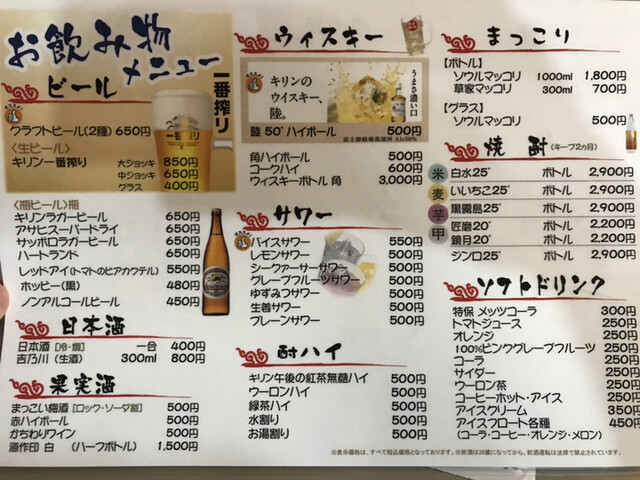 お飲み物
メニュー
ビール
一番搾り
クラフトビール(2種) 650円
〈生ビール〉
キリン一番搾り 大ジョッキ 850円
中ジョッキ 650円
グラス 400円
〈瓶ビール〉瓶
キリンラガービール 650円
アサヒスーパードライ 650円
サッポロラガービール 650円
ハートランド 650円
レッドアイ(トマトのビアカクテル) 550円
ホッピー(黒) 480円
ノンアルコールビール 450円
日本酒
日本酒 [冷・燗] 一合 400円
吉乃川 (生酒) 300ml 800円
果実酒
まっこい梅酒 [ロック・ソーダ割] 500円
赤ハイボール 500円
かちわりワイン 500円
源作印 白 (ハーフボトル) 1,500円
ウィスキー
キリンの
ウイスキー、
陸。
うまさ濃い口
陸 50° ハイボール 500円
富士御殿場蒸溜所 Alc50%
角ハイボール 500円
コークハイ 600円
ウィスキーボトル 角 3,000円
サワー
バイスサワー 550円
レモンサワー 500円
シークァーサーサワー 500円
グレープフルーツサワー 500円
ゆずみつサワー 500円
生姜サワー 500円
プレーンサワー 500円
酎ハイ
キリン午後の紅茶無糖ハイ 500円
ウーロンハイ 500円
緑茶ハイ 500円
水割り 500円
お湯割り 500円
まっこり
【ボトル】
ソウルマッコリ 1000ml 1,800円
草家マッコリ 300ml 700円
【グラス】
ソウルマッコリ 500円
焼酎 (キープ2カ月)
米 白水25° ボトル 2,900円
麦 いいちこ25° ボトル 2,900円
芋 黒霧島25° ボトル 2,900円
甲 匠磨20° ボトル 2,200円
鏡月20° ボトル 2,200円
ジンロ25° ボトル 2,900円
ソフトドリンク
特保 メッツコーラ 300円
トマトジュース 250円
オレンジ 250円
100%ピンクグレープフルーツ 250円
コーラ 250円
サイダー 250円
ウーロン茶 250円
コーヒーホット・アイス 250円
アイスクリーム 350円
アイスフロート各種 450円
(コーラ・コーヒー・オレンジ・メロン)
※表示価格は、すべて税込価格となっております。※飲酒は20歳になってから。飲酒運転は法律で禁止されています。